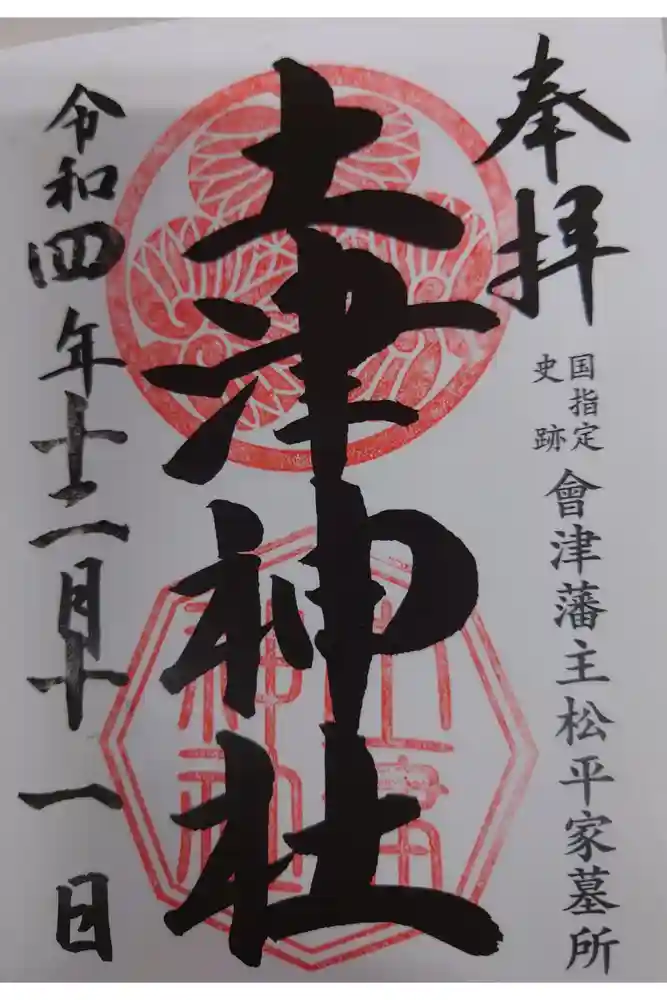 奉拝
国指定
史跡
會津藩主松平家墓所
土津神社
令和四年十二月十一日